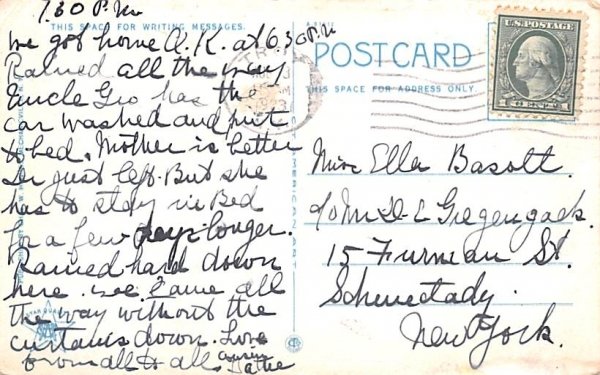 7.30 P.M
THIS SPACE FOR WRITING MESSAGES.
we got home O.K. at 6.30 P.M
Rained all the way
Uncle Geo has the
car washed and put
to bed. Mother is better
Dr just left. But she
has to stay in Bed
for a few days longer.
Rained hard down
here. we came all
the way without the
curtains down. Love
from all to all
Katie
POSTCARD
THIS SPACE FOR ADDRESS ONLY.
U.S. POSTAGE
1 CENT 1
Miss Ella Basolt.
c/o Mr D-C Gregengack.
15 Furman St.
Schenectady.
New York.